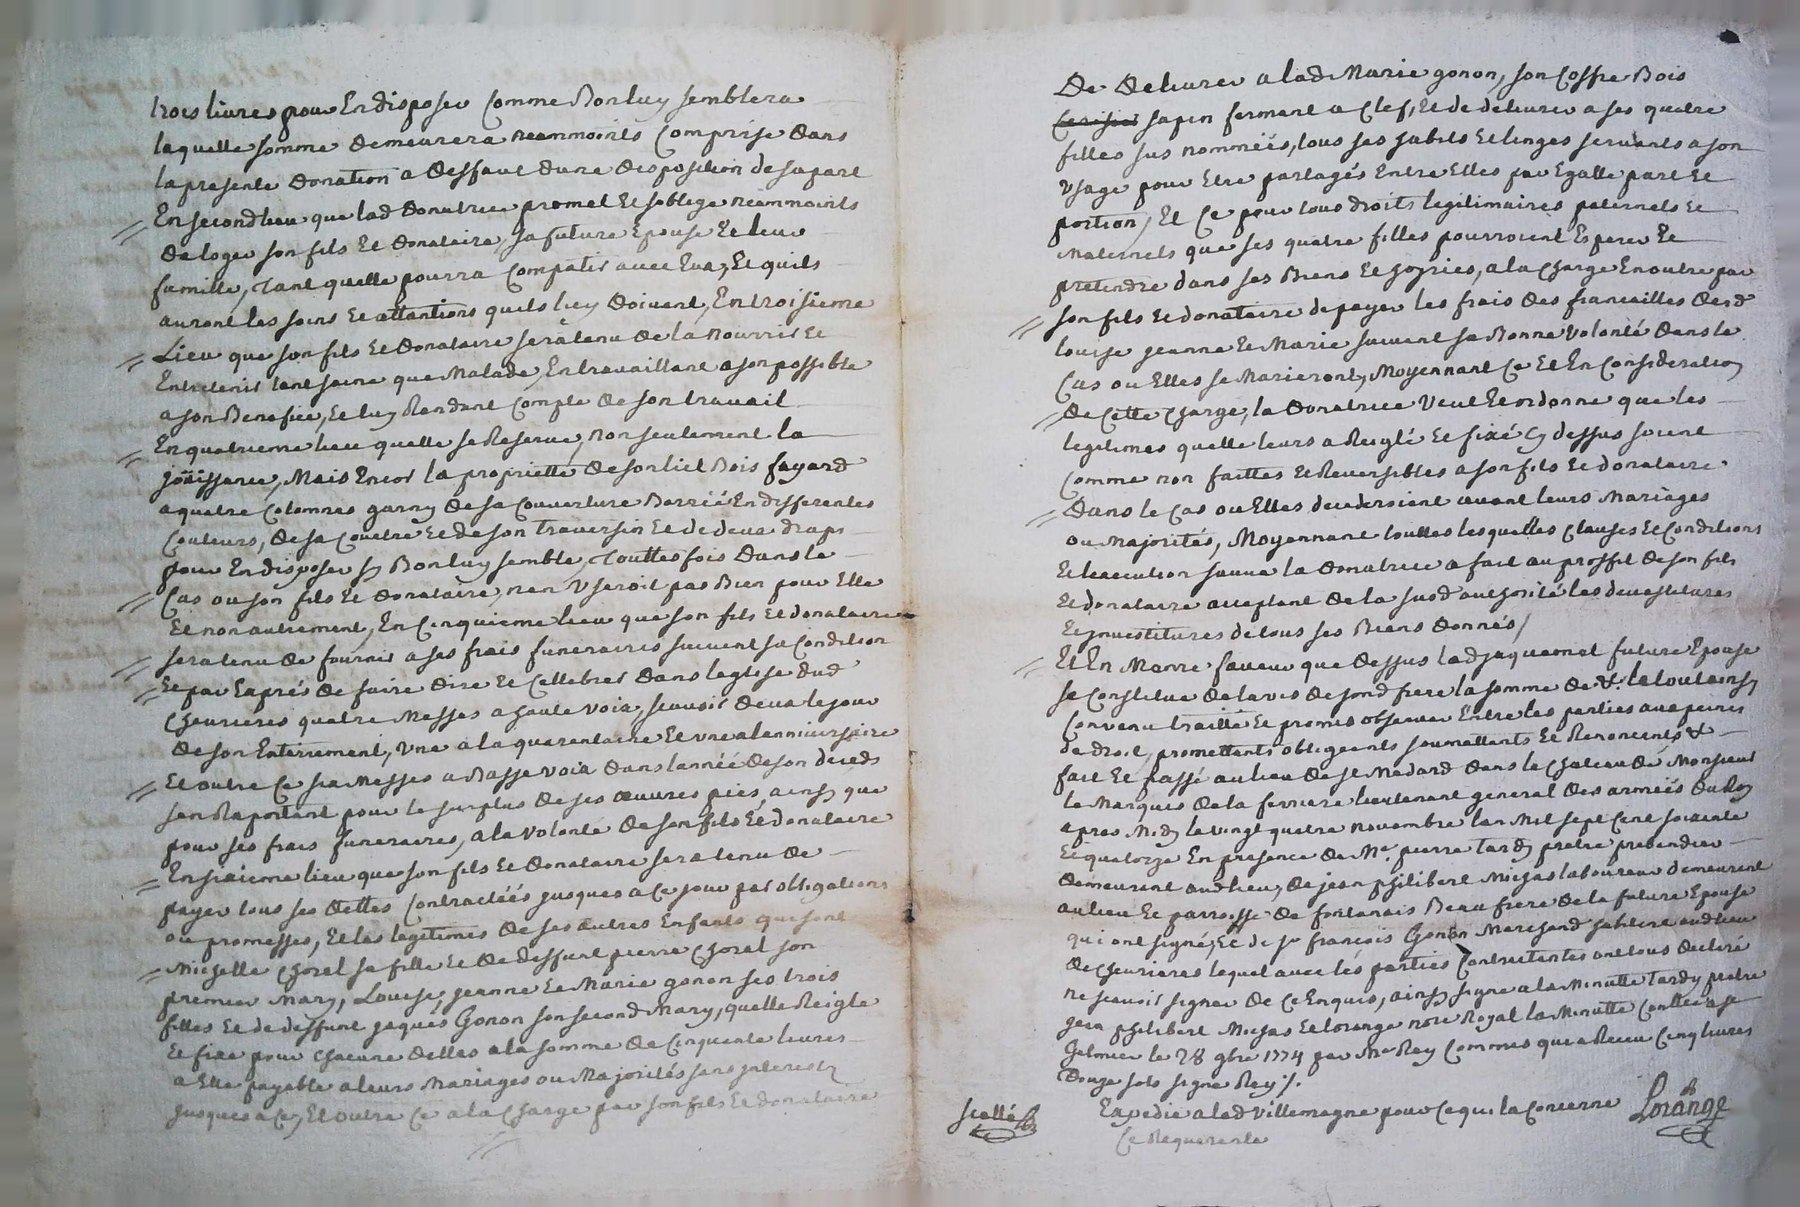 trois livres pour En disposer Comme Bon luy semblera
laquelle somme demeurera neanmoints Comprise dans
la presente donation a deffaut dune disposition de sa part
En second lieu que lad donatrice promet Et soblige neanmoints
de loger son fils Et donataire, sa future Epouse Et leur
famille, tant quelle pourra Compatir avec Eux, Et quils
auront les soins Et attantions quils luy doivent, En troisieme
Lieu que son fils Et donataire sera tenu de la nourrir Et
Entretenir tant saine que Malade, En travaillant a son possible
a son Benefice, Et luy Rendant Compte de son travail
En quatrieme lieu quelle se Reserve, non seulement la
joüissance, Mais Encor la proprietté de son lict Bois fayard
a quatre Colomnes garny de sa Couverture Barrié En differentes
Couleurs, de sa Couetre Et de son traversin Et de deux draps
pour En disposer sy Bon luy semble, touttes fois dans le
Cas ou son fils Et donataire, nen Useroit pas Bien pour Elle
Et non autrement, En Cinquieme lieu que son fils Et donataire
sera tenu de fournir a ses frais funeraires suivent sa Condition
Et par Exprés de faire dire Et Cellebrer dans leglise dud
Chevrieres quatre Messes a haute voix, scavoir deux le jour
de son Enterrement, Une a la quarentaine Et Une alanniversaire
Et outre Ce six Messes a Basse voix dans lannée de son deceds
sen Raportant pour le surplus de ses œuvres pies, ainsy que
pour ses frais funeraires, a la volonté de son fils Et donataire
En sixieme lieu que son fils Et donataire sera tenu de
payer tous ses dettes Contractéés jusques a Ce jour par obligations
ou promesses, Et les legitimes de ses autres Enfants qui sont
Michelle Chorel sa fille Et de deffunt pierre Chorel son
premier Mary, Louise, jeanne Et Marie gonon ses trois
filles Et de deffunt jaques Gonon son second Mary, quelle Reigle
Et fixe pour Chacune delles a la somme de Cinquente livres
a Elle payable a leurs Mariages ou Majorités sans interest
jusques a Ce, Et outre Ce a la Charge par son fils Et donataire
De delivrer a lad Marie gonon, son Coffre Bois
sapin fermant a Clef, Et de delivrer a ses quatre
filles sus nomméés, tous ses habits Et linges servants a son
Usage pour Etre partagés Entre Elles par Egalle part Et
portion, Et Ce pour tous droits legitimaires paternels Et
Maternels que ses quatre filles pourroient Esperer Et
pretendre dans ses Biens Et hoyries, a la Charge En outre par
son fils Et donataire de payer les frais des fiancailles desd
louise jeanne Et Marie suivent sa Bonne volonté dans le
Cas ou Elles se Marieront, Moyennant Ce Et En Consideration
de Cette Charge, la donatrice veut Et ordonne que les
legitimes quelle leurs a Reiglé Et fixé Cy dessus soient
Comme non faittes Et Reversibles a son fils Et donataire
Dans le Cas ou Elles decederoient avant leurs Mariages
ou Majorités, Moyennant touttes lesquelles Clauses Et Conditions
Et Execution sauve la donatrice a fait au proffit de son fils
Et donataire acceptant de la susd authorité les devestitures
Et jnvestitures de tous ses Biens donnés/
Et En Manre faveur que dessus lad jaquemet future Epouse
se Constitue de lavis de sond frere la somme de &. le tout ainsy
Convenu traitté Et promis observer Entre les parties aux peines
de droit, promettants obligeants soumettants Et Renoncents &
fait Et passé au lieu de St Medard dans le Chateau de Monsieur
le Marquis de la ferriere lieutenant general des armeés du Roy
apres Midy le vingt quatre novembre lan Mil sept Cent soixante
Et quatorze En presence de Mre pierre tardy pretre prebendier
demeurent audt lieu, de jean philibert Michas laboureur demeurent
au lieu Et parroisse de fontanais Beau frere de la future Epouse
qui ont signé, Et de sr francois Gonon Marchand sabtier aud lieu
de Chevrieres lequel avec lés parties Contractentes ont tous declaré
ne scavoir signer de Ce Enquis, ainsy signe a la Minutte tardy pretre
jean philibert Michas Et lorange nore Royal la Minutte Contlee a st
Galmier le 28 9bre 1774 par Mr Rey Commis qui a Receu Cinq livres
Douze sols signe Rey /.
Expedié a lad villemagne pour Ce qui la Concerne
Ce Requerente
Scellé
Lorange